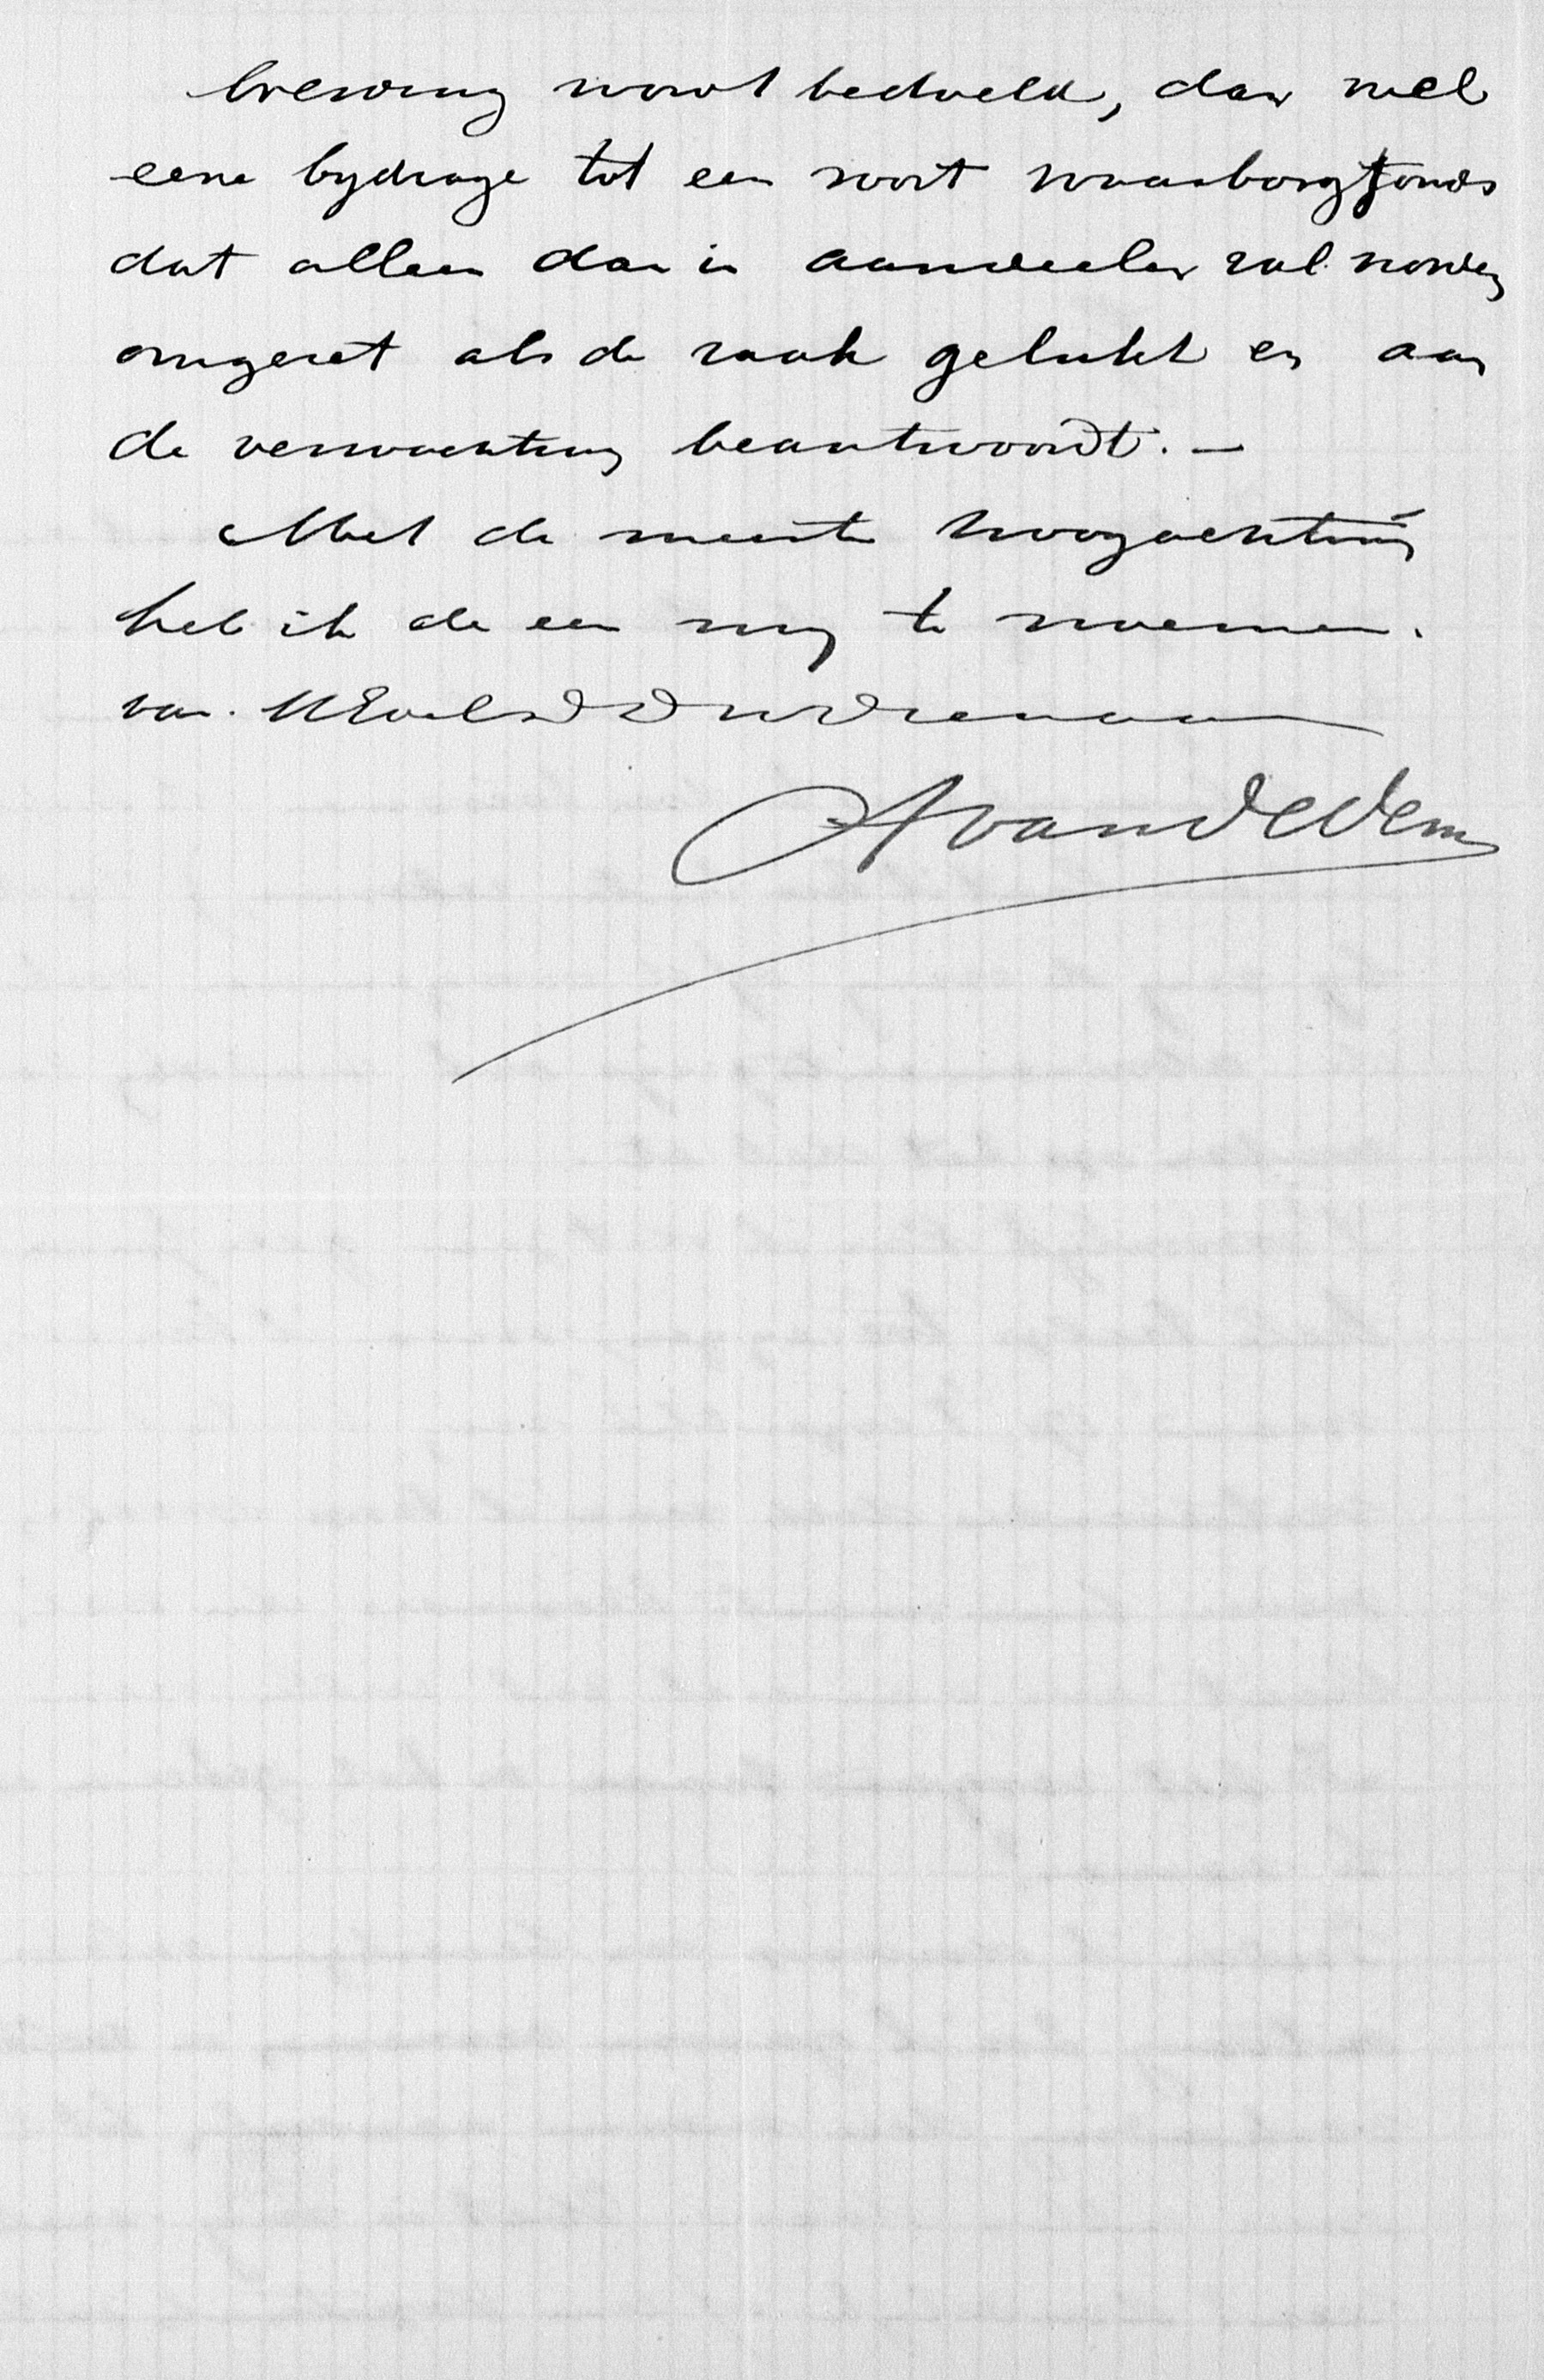 brenging wordt bedoeld, dan wel
eene bydrage tot een soort waarborgfonds
dat alleen dan in aandeelen zal worden
omgezet als de zaak gelukt en aan
de verwachting beantwoordt. —
Met de meeste hoogachting
heb ik de eer my te noemen.
van. UEwelEd Dw Dienaar
A van Dedem